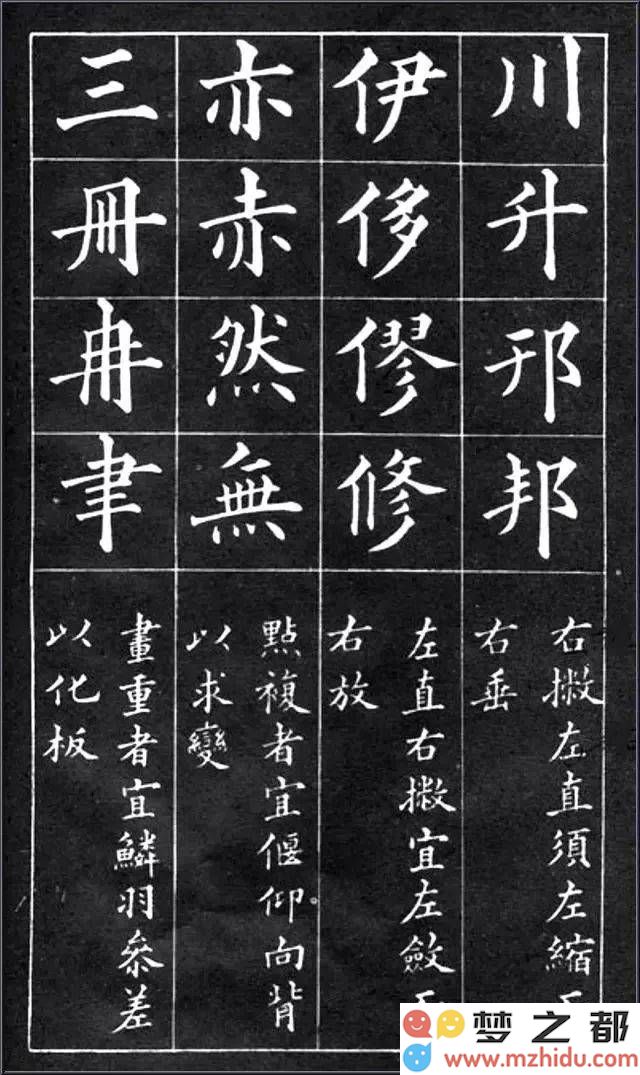 川升邢邦
右撇左直須左縮
右垂
伊侈僇修
左直右撇宜左斂
右放
亦赤然無
點複者宜偃仰向背
以求變
三冊冉聿
畫重者宜鱗羽參差
以化板
梦之都
www.mzhidu.com